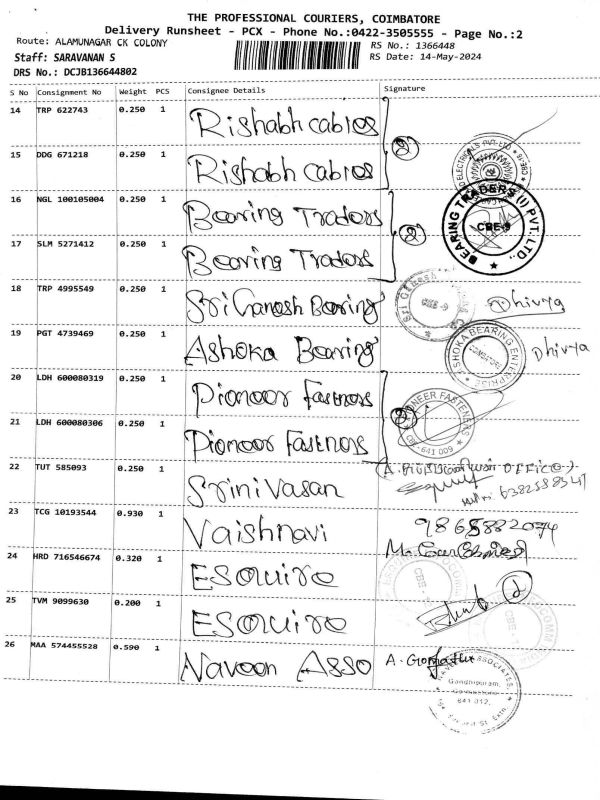 THE PROFESSIONAL COURIERS, COIMBATORE
Delivery Runsheet - PCX - Phone No.:0422-3505555 - Page No.:2
Route: ALAMUNAGAR CK COLONY
RS No.: 1366448
Staff: SARAVANAN S
RS Date: 14-May-2024
DRS No.: DCJB136644802
S No Consignment No Weight PCS Consignee Details Signature
14 TRP 622743 0.250 1 Rishabh cables
15 DDG 671218 0.250 1 Rishabh cables
2
16 NGL 100105004 0.250 1 Bearing Traders
BEARING TRADERS (I) PVT. LTD.,
CBE-9
17 SLM 5271412 0.250 1 Bearing Traders
2
18 TRP 4995549 0.250 1 Sri Ganesh Bearing
Sri Ganesh
CBE-9
Dhivya
19 PGT 4739469 0.250 1 Ashoka Bearing
ASHOKA BEARING ENTERPRISE
COIMBATORE
Dhivya
20 LDH 600080319 0.250 1 Pioneer Fastners
PIONEER FASTENERS
CBE-641 009
2
21 LDH 600080306 0.250 1 Pioneer Fastners
22 TUT 585093 0.250 1 Srinivasan
23 TCG 10193544 0.930 1 Vaishnavi
9865882074
24 HRD 716546674 0.320 1 Esquire
25 TVM 9099630 0.200 1 Esquire
2
26 MAA 574455528 0.590 1 Naveen Asso
A. Gomathi
ASSOCIATES,
Gandhipuram,
Coimbatore
641 012.